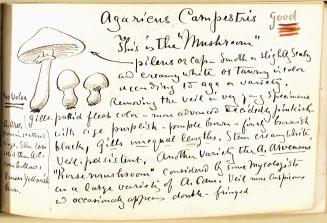 Agaricus Campestris Good
This is the "Mushroom"
pileus or cap smooth or slightly scaly
and creamy white or tawny in color
according to age or variety.
Removing the veil in very young specimens
Gills pallid flesh color - more advanced decided pinkish
with age purplish - purple brown - finally brownish
black, Gills unequal lengths. Stem creamy white,
Veil persistent. Another variety the A. Arvensis
"Horse mushroom" considered by some mycologists
as a large variety of A. Cam. Veil more conspicuous
& occasionally appears double-fringed
No Volva